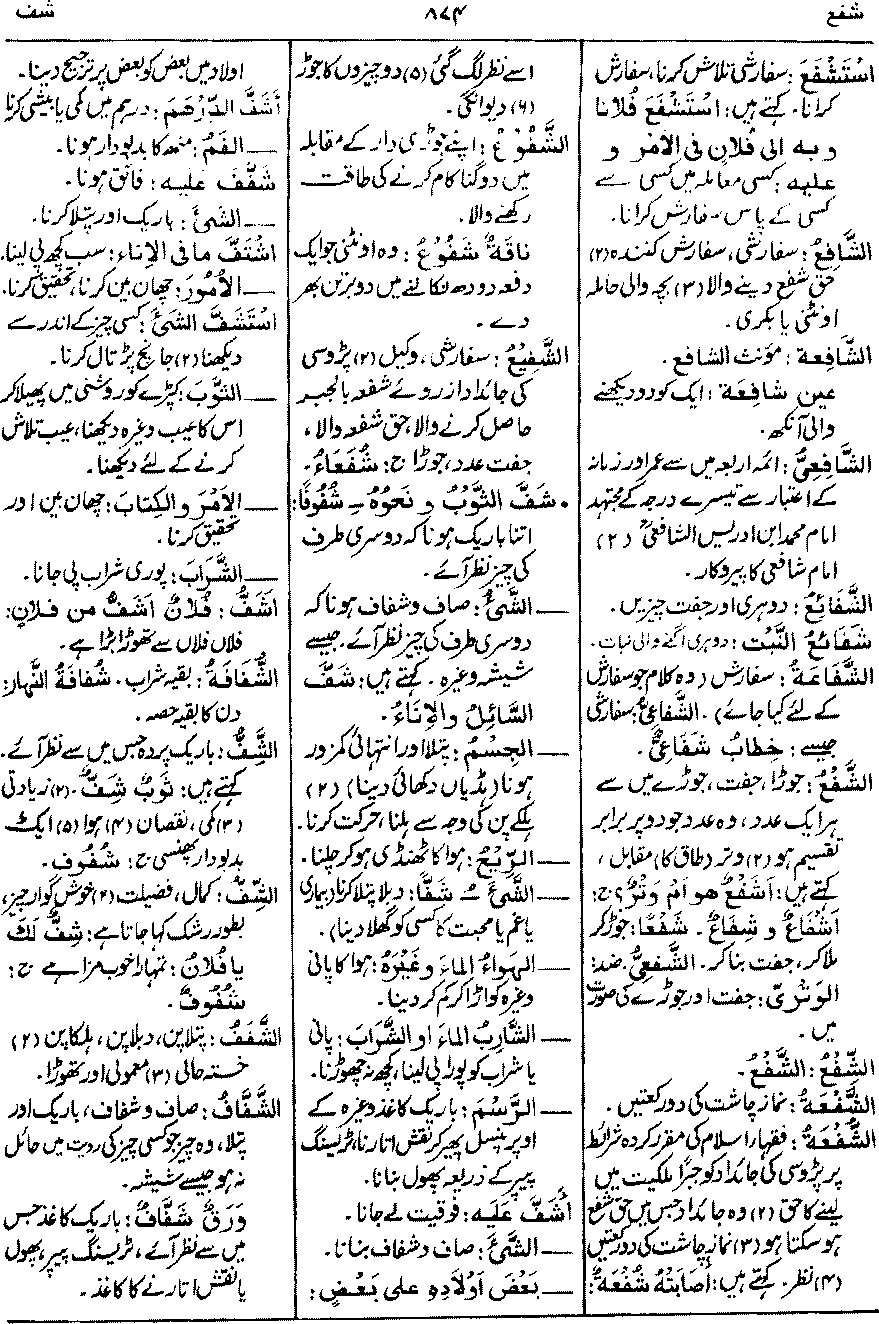 شفع
۸۷۴
شف
اسْتَشْفَعَ: سفارشی تلاش کرنا، سفارش
کرانا. کہتے ہیں: اسْتَشْفَعَ فُلَانًا
و بہ الی فُلان فی الامْر و
علیہ: کسی معاملہ میں کسی سے
کسی کے پاس سفارش کرانا.
الشَّافِعُ: سفارشی، سفارش کنندہ (۲)
حق شفع دینے والا (۳) بچہ والی حاملہ
اونٹنی یا بکری.
الشَّافِعة: مؤنث الشافع.
عین شافِعَة: ایک کو دو دیکھنے
والی آنکھ.
الشَّافِعِیُّ: ائمہ اربعہ میں سے عمر اور زمانہ
کے اعتبار سے تیسرے درجہ کے مجتہد
امام محمد ابن ادریس الشافعیؒ (۲)
امام شافعی کا پیروکار.
الشَّفَائِعُ: دوہری اور جفت چیزیں.
شَفَائعُ النَّبْت: دوہری اُگنے والی نبات.
الشَّفَاعَةُ: سفارش (وہ کلام جو سفارش
کے لئے کیا جائے). الشَّفَاعِیُّ: سفارشی
جیسے: خِطَابٌ شَفَاعِیٌّ.
الشَّفْعُ: جوڑا، جفت، جوڑے میں سے
ہر ایک عدد، وہ عدد جو دو پر برابر
تقسیم ہو (۲) وتر (طاق کا) مقابل،
کہتے ہیں: اَشَفْعٌ ھو اَمْ وَتْرٌ؟ ج:
اَشْفَاعٌ و شِفَاعٌ. شَفْعًا: جوڑ کر
ملا کر، جفت بنا کر. الشَّفْعِیُّ: ضد:
الوَتْرِیّ: جفت اور جوڑے کی صورت
میں.
الشِّفْعُ: الشَّفْعُ.
الشَّفْعَةُ: نماز چاشت کی دو رکعتیں.
الشُّفْعَةُ: فقہاء اسلام کی مقرر کردہ شرائط
پر پڑوسی کی جائداد کو جبراً ملکیت میں
لینے کا حق (۲) وہ جائداد جس میں حق شفع
ہو سکتا ہو (۳) نماز چاشت کی دو رکعتیں
(۴) نظر. کہتے ہیں: اَصَابَتْهُ شُفْعَةٌ:
اسے نظر لگ گئی (۵) دو چیزوں کا جوڑ
(۶) دیوانگی.
الشَّفُوْعُ: اپنے جوڑی دار کے مقابلہ
میں دوگنا کام کرنے کی طاقت
رکھنے والا.
ناقَةٌ شَفُوعٌ: وہ اونٹنی جو ایک
دفعہ دودھ نکالنے میں دو برتن بھر
دے.
الشَّفِیْعُ: سفارشی، وکیل (۲) پڑوسی
کی جائداد از روئے شفعہ بالجبر
حاصل کرنے والا، حق شفعہ والا،
جفت عدد، جوڑا ج: شُفَعَاءُ.
• شَفَّ الثَّوْبُ و نَحْوُهُ ـِ شُفُوفًا:
اتنا باریک ہونا کہ دوسری طرف
کی چیز نظر آئے.
ــــ الشَّیْءُ: صاف و شفاف ہونا کہ
دوسری طرف کی چیز نظر آئے. جیسے
شیشہ وغیرہ. کہتے ہیں: شَفَّ
السَّائِلُ والاِنَاءُ.
ــــ الجِسْمُ: پتلا اور انتہائی کمزور
ہونا (ہڈیاں دکھائی دینا) (۲)
ہلکے پن کی وجہ سے ہلنا، حرکت کرنا.
ــــ الرِّیْحُ: ہوا کا ٹھنڈی ہو کر چلنا.
ــــ الشَّیْءَ ـُ شَفًّا: دبلا پتلا کرنا (بیماری
یا غم یا محبت کا کسی کو گھلا دینا).
ــــ الھَوَاءُ الماءَ وغَیْرَهُ: ہوا کا پانی
وغیرہ کو اڑا کر کم کر دینا.
ــــ الشَّارِبُ الماءَ او الشَّرَابَ: پانی
یا شراب کو پورا پی لینا، کچھ نہ چھوڑنا.
ــــ الرَّسْمَ: باریک کاغذ وغیرہ کے
اوپر پنسل پھیر کر نقش اتارنا، ٹریسنگ
پیپر کے ذریعہ پھول بنانا.
اَشَفَّ عَلَیه: فوقیت لے جانا.
ــــ الشَّیْءَ: صاف و شفاف بنانا.
ــــ بَعْضَ اَوْلَادِهِ علی بَعْضٍ:
اولاد میں بعض کو بعض پر ترجیح دینا.
اَشَفَّ الدِّرْهَمَ: درہم میں کمی یا بیشی کرنا
ــــ الفَمُ: منھ کا بدبودار ہونا.
شَفَّفَ علیه: فائق ہونا.
ــــ الشَّیْءَ: باریک اور پتلا کرنا.
اشْتَفَّ ما فی الاِناء: سب کچھ پی لینا.
ــــ الاُمُورَ: چھان بین کرنا، تحقیق کرنا.
اسْتَشَفَّ الشَّیْءَ: کسی چیز کے اندر سے
دیکھنا (۲) جانچ پڑتال کرنا.
ــــ الثَّوْبَ: کپڑے کو روشنی میں پھیلا کر
اس کا عیب وغیرہ دیکھنا، عیب تلاش
کرنے کے لئے دیکھنا.
ــــ الاَمْرَ والکِتَابَ: چھان بین اور
تحقیق کرنا.
ــــ الشَّرَابَ: پوری شراب پی جانا.
اَشَفُّ: فُلَانٌ اَشَفُّ من فلانٍ:
فلاں فلاں سے تھوڑا بڑا ہے.
الشُّفَافَةُ: بقیہ شراب. شُفافَةُ النَّهارِ:
دن کا بقیہ حصہ.
الشَّفُّ: باریک پردہ جس میں سے نظر آئے.
کہتے ہیں: ثَوْبٌ شَفٌّ. (۲) زیادتی
(۳) کمی، نقصان (۴) ہوا (۵) ایک
بدبودار پھنسی ج: شُفُوف.
الشِّفُّ: کمال، فضیلت (۲) خوش گوار چیز،
بطور رشک کہا جاتا ہے: شِفٌّ لَكَ
یا فُلانُ: تمہارا خوب مزا ہے ج:
شُفُوفٌ.
الشَّفَفُ: پتلا پن، دبلا پن، ہلکا پن (۲)
خستہ حالی (۳) معمولی اور تھوڑا.
الشَّفَّافُ: صاف و شفاف، باریک اور
پتلا، وہ چیز جو کسی چیز کی رویت میں حائل
نہ ہو جیسے شیشہ.
وَرَقٌ شَفَّافٌ: باریک کاغذ جس
میں سے نظر آئے، ٹریسنگ پیپر، پھول
یا نقش اتارنے کا کاغذ.